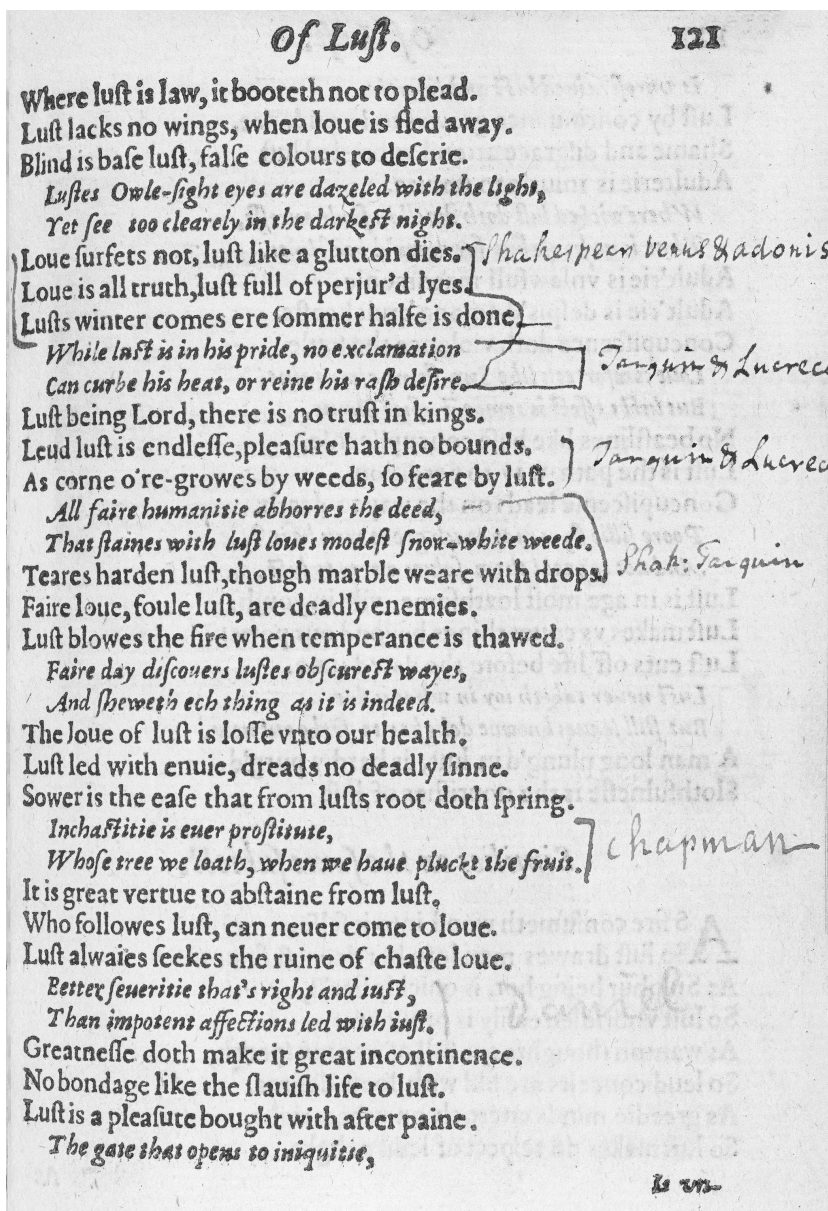 Of Luſt. 121
Where luſt is law, it booteth not to plead.
Luſt lacks no wings, when loue is fled away.
Blind is baſe luſt, falſe colours to deſcrie.
Luſtes Owle-ſight eyes are dazeled with the light,
Yet ſee too clearely in the darkeſt night.
Loue ſurfets not, luſt like a glutton dies. Shakespeer Venus & adonis
Loue is all truth,luſt full of perjur'd lyes.
Luſts winter comes ere ſommer halfe is done,
While luſt is in his pride, no exclamation
Can curbe his heat, or reine his raſh deſire. Tarquin & Lucrece
Luſt being Lord, there is no truſt in kings.
Leud luſt is endleſſe,pleaſure hath no bounds.
As corne o're-growes by weeds, ſo feare by luſt. Tarquin & Lucrec
All faire humanitie abhorres the deed,
That ſtaines with luſt loues modeſt ſnow-white weede.
Teares harden luſt,though marble weare with drops. Shak: Tarquin
Faire loue, foule luſt, are deadly enemies.
Luſt blowes the fire when temperance is thawed.
Faire day diſcouers luſtes obſcureſt wayes,
And ſheweth ech thing as it is indeed.
The loue of luſt is loſſe vnto our health.
Luſt led with enuie, dreads no deadly ſinne.
Sower is the eaſe that from luſts root doth ſpring.
Inchaſtitie is euer proſtitute,
Whoſe tree we loath, when we haue pluckt the fruit. chapman
It is great vertue to abſtaine from luſt.
Who followes luſt, can neuer come to loue.
Luſt alwaies ſeekes the ruine of chaſte loue.
Better ſeueritie that's right and iuſt,
Than impotent affections led with luſt. Daniel
Greatneſſe doth make it great incontinence.
No bondage like the ſlauiſh life to luſt.
Luſt is a pleaſure bought with after paine.
The gate that opens to iniquitie,
Is vn-